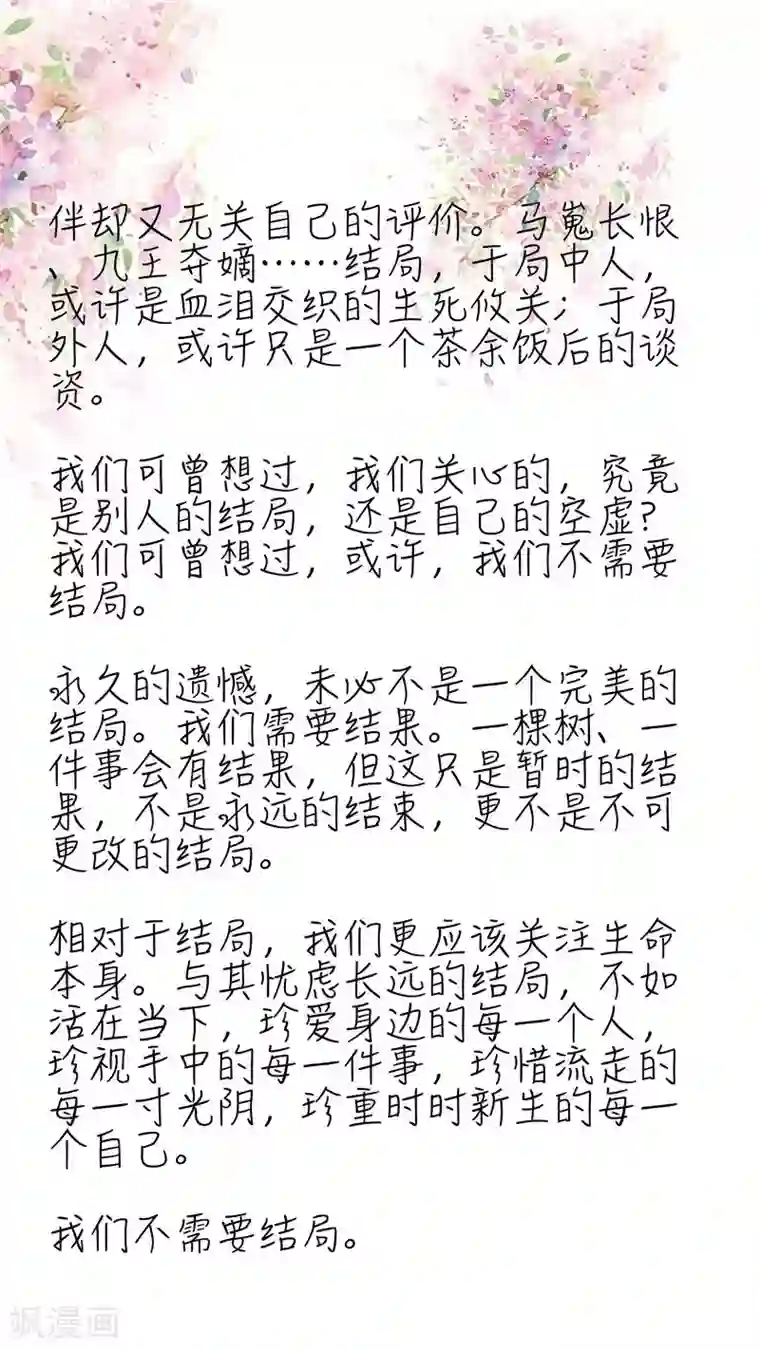 伴却又无关自己的评价。马嵬长恨
、九王夺嫡……结局，于局中人，
或许是血泪交织的生死攸关；于局
外人，或许只是一个茶余饭后的谈
资。
我们可曾想过，我们关心的，究竟
是别人的结局，还是自己的空虚？
我们可曾想过，或许，我们不需要
结局。
永久的遗憾，未必不是一个完美的
结局。我们需要结果。一棵树、一
件事会有结果，但这只是暂时的结
果，不是永远的结束，更不是不可
更改的结局。
相对于结局，我们更应该关注生命
本身。与其忧虑长远的结局，不如
活在当下，珍爱身边的每一个人，
珍视手中的每一件事，珍惜流走的
每一寸光阴，珍重时时新生的每一
个自己。
我们不需要结局。
飒漫画